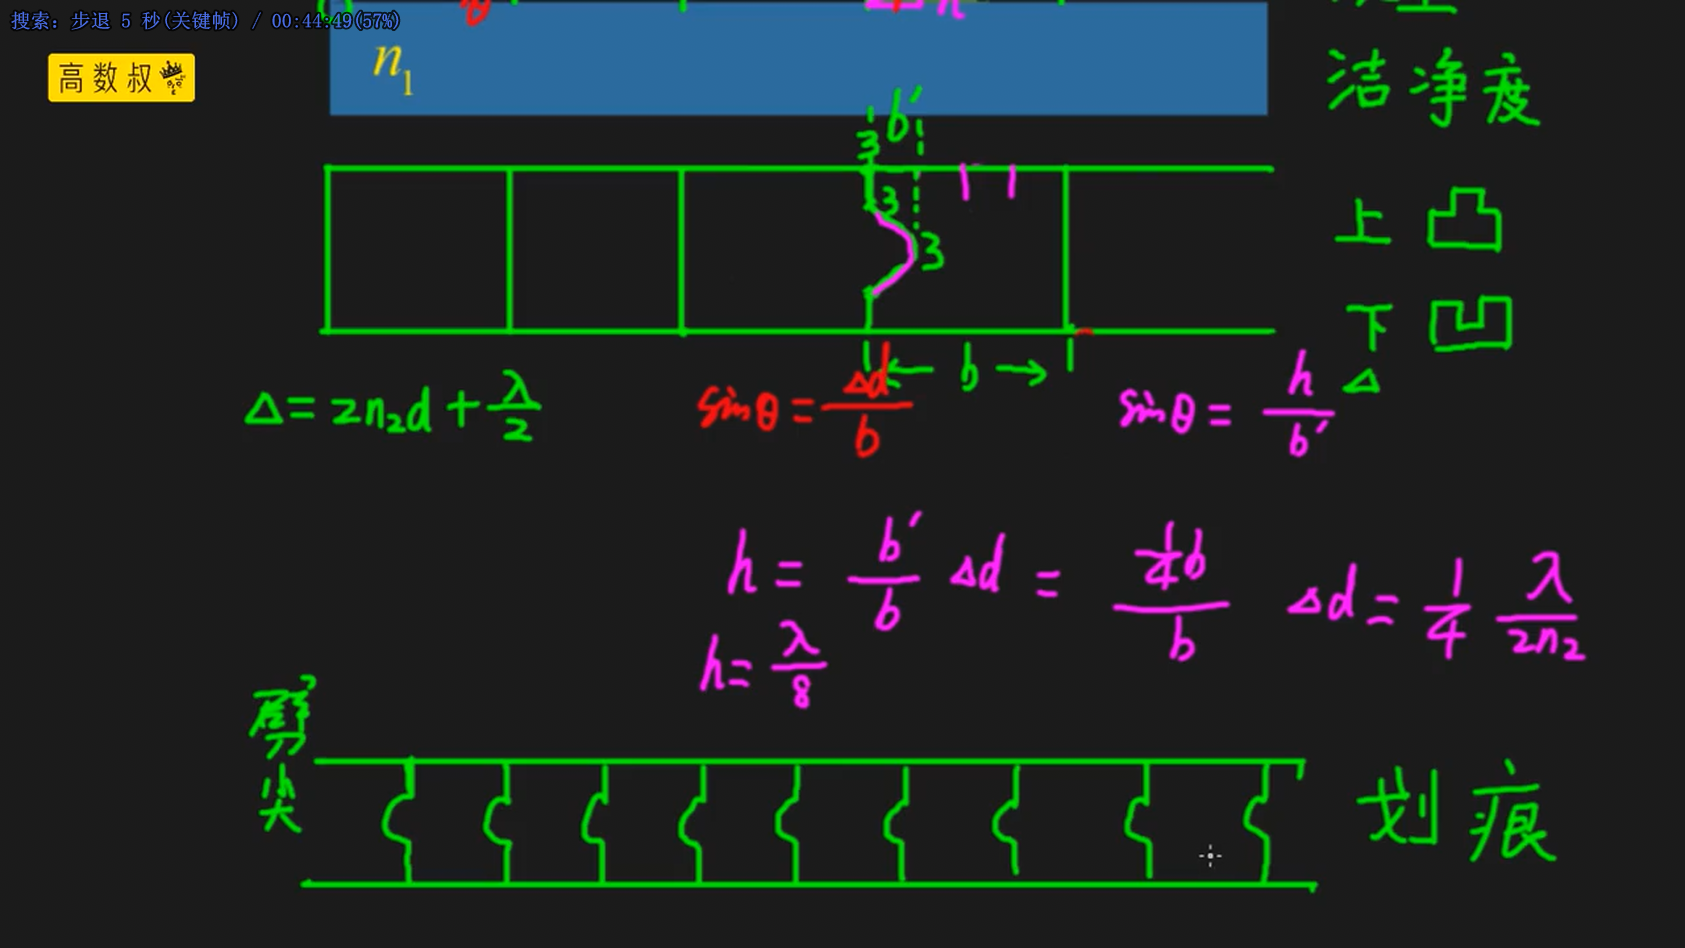 搜索: 步退 5 秒(关键帧) / 00:44:49(57%)
θ
h
高数叔
n₁
洁净度
b′
3
3
3
上
下
b
Δ
Δ = 2n₂d + λ/2
sinθ = Δd/b
sinθ = h/b′
h = b′/b Δd = ¼b/b Δd = 1/4 λ/2n₂
h = λ/8
劈尖
划痕